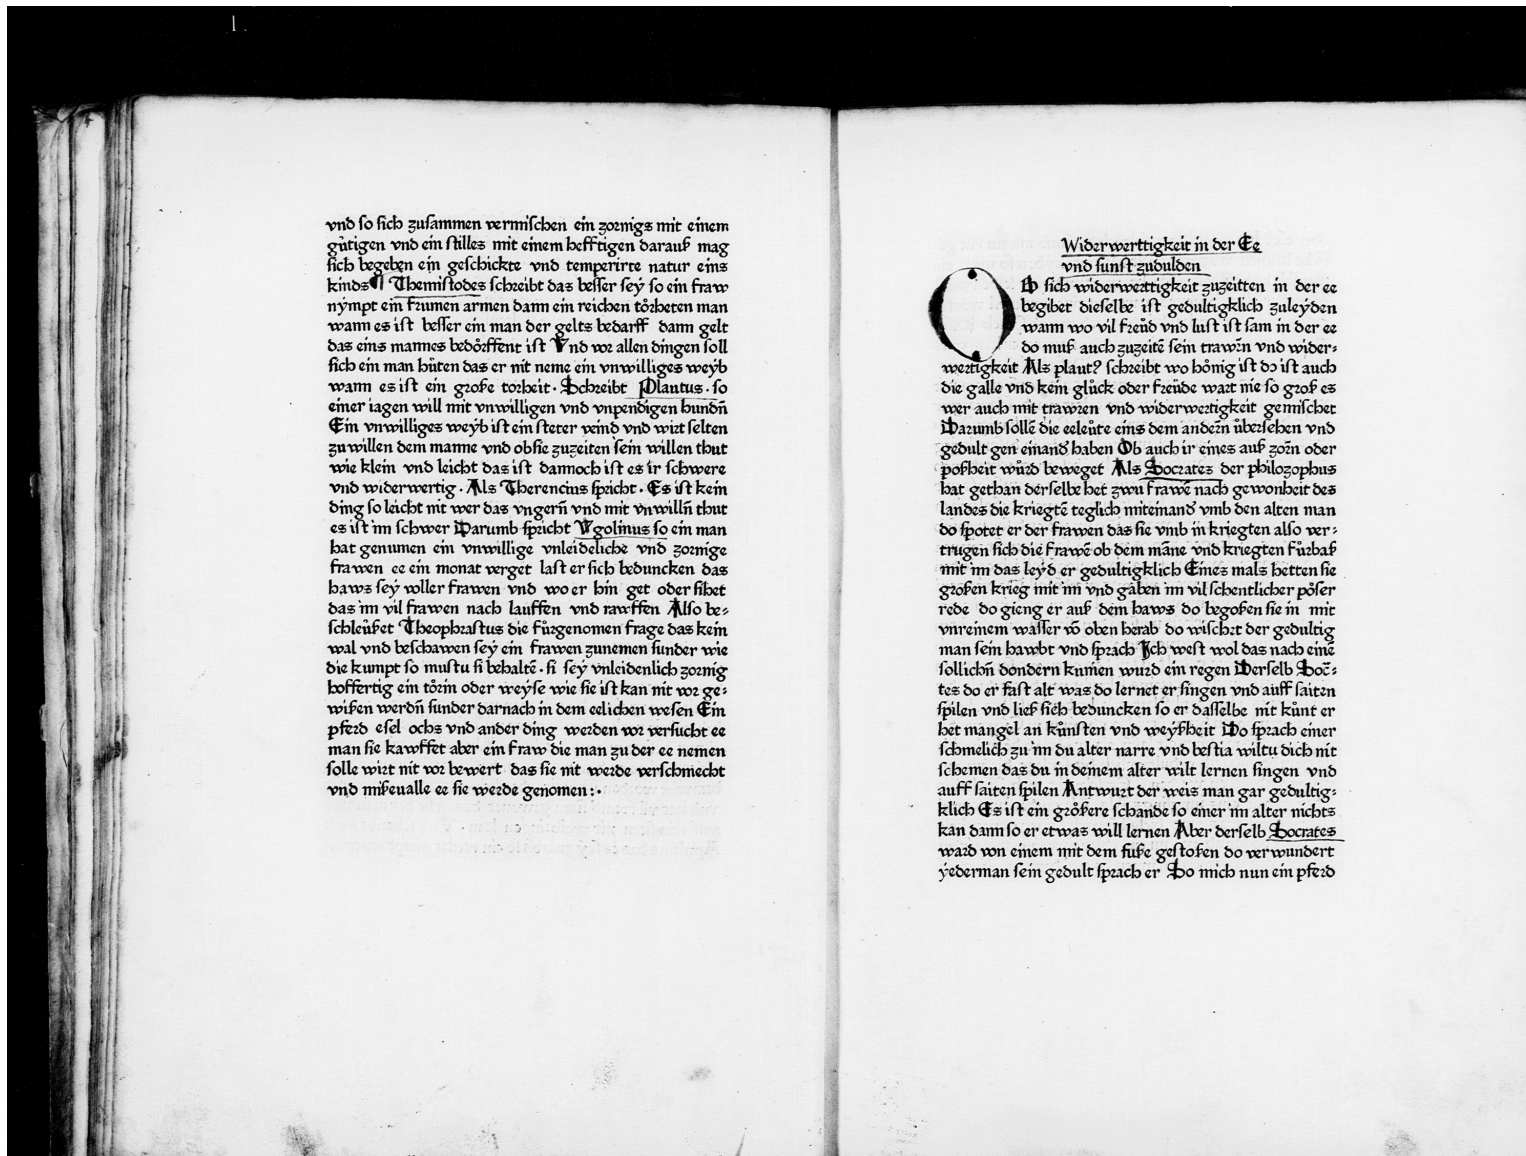 vnd so sich zusammen vermischen ein zornigs mit einem
gůtigen vnd ein stilles mit einem hefftigen darauß mag
sich begeben ein geschickte vnd temperirte natur eins
kinds¶ Themistodes schreibt das besser seÿ so ein fraw
nÿmpt ein frumen armen dann ein reichen tőrheten man
wann es ist besser ein man der gelts bedarff dann gelt
das eins mannes bedőrffent ist Vnd vor allen dingen soll
sich ein man hüten das er nit neme ein vnwilliges weÿb
wann es ist ein große torheit · Schreibt Plautus · so
einer iagen will mit vnwilligen vnd vnpendigen hundn̄
Ein vnwilliges weÿb ist ein steter veind vnd wirt selten
zuwillen dem manne vnd obsie zuzeiten sein willen thut
wie klein vnd leicht das ist dannoch ist es ir schwere
vnd widerwertig · Als Therencius spricht · Es ist kein
ding so leicht nit wer das vngern̄ vnd mit vnwilln̄ thut
es ist im schwer Darumb spricht Vgolinus so ein man
hat genumen ein vnwillige vnleideliche vnd zornige
frawen ee ein monat verget last er sich beduncken das
haws seÿ voller frawen vnd wo er hin get oder sihet
das im vil frawen nach lauffen vnd rawffen Also be⸗
schleüßet Theophrastus die fůrgenomen frage das kein
wal vnd beschawen seÿ ein frawen zunemen sunder wie
die kumpt so mustu si behaltē · si seÿ vnleidenlich zornig
hoffertig ein tőrin oder weÿse wie sie ist kan nit vor ge⸗
wißen werdn̄ sunder darnach in dem eelichen wesen Ein
pferd esel ochs vnd ander ding werden vor versucht ee
man sie kawffet aber ein fraw die man zu der ee nemen
solle wirt nit vor bewert das sie nit werde verschmecht
vnd mißeualle ee sie werde genomen : ·
Widerwerttigkeit in der Ee
vnd sunst zudulden
OB sich widerwerttigkeit zuzeitten in der ee
begibet dieselbe ist gedultigklich zuleÿden
wann wo vil freüd vnd lust ist sam in der ee
do muß auch zuzeitē sein trawrn̄ vnd wider⸗
wertigkeit Als plautꝰ schreibt wo hőnig ist do ist auch
die galle vnd kein glůck oder freüde wart nie so groß es
wer auch mit trawren vnd widerwertigkeit gemischet
Darumb sollē die eeleüte eins dem andern übersehen vnd
gedult gen einand̕ haben Ob auch ir eines auß zorn oder
poßheit wůrd beweget Als Socrates der philozophus
hat gethan derselbe het zwu frawē nach gewonheit des
landes die kriegtē teglich miteinand̕ vmb den alten man
do spotet er der frawen das sie vmb in kriegten also ver⸗
trugen sich die frawē ob dem māne vnd kriegten fůrbaß
mit im das leÿd er gedultigklich Eines mals hetten sie
großen krieg mit im vnd gåben im vil schentlicher pőser
rede do gieng er auß dem haws do begoßen sie in mit
vnreinem wasser vō oben herab do wischet der gedultig
man sein hawbt vnd sprach Ich west wol das nach einē
sollichn̄ dondern kumen wurd ein regen Derselb Socra⸗
tes do er fast alt was do lernet er singen vnd auff saiten
spilen vnd ließ sich beduncken so er dasselbe nit kůnt er
het mangel an kůnsten vnd weÿßheit Do sprach einer
schmelich zu im du alter narre vnd bestia wiltu dich nit
schemen das du in deinem alter wilt lernen singen vnd
auff saiten spilen Antwurt der weis man gar gedultig⸗
klich Es ist ein grőßere schande so einer im alter nichts
kan dann so er etwas will lernen Aber derselb Socrates
ward von einem mit dem fuße gestoßen do verwundert
ÿederman sein gedult sprach er So mich nun ein pferd